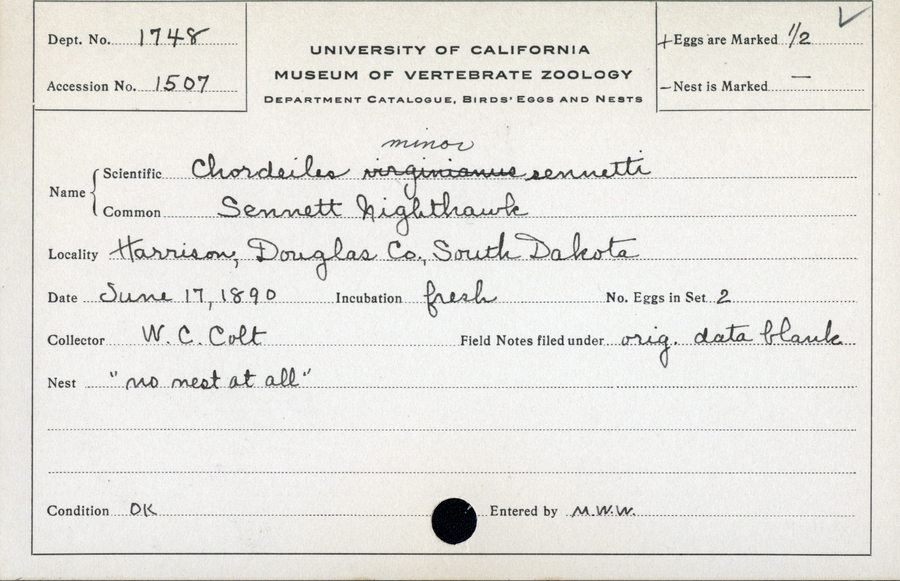 Dept. No. 1748
Accession No. 1507
UNIVERSITY OF CALIFORNIA
MUSEUM OF VERTEBRATE ZOOLOGY
DEPARTMENT CATALOGUE, BIRDS' EGGS AND NESTS
+Eggs are Marked 1/2
—Nest is Marked —
minor
Name Scientific Chordeiles virginianus sennetti
Common Sennett Nighthawk
Locality Harrison, Douglas Co., South Dakota
Date June 17, 1890 Incubation fresh No. Eggs in Set 2
Collector W. C. Colt Field Notes filed under orig. data blank
Nest "no nest at all"
Condition OK Entered by M.W.W.